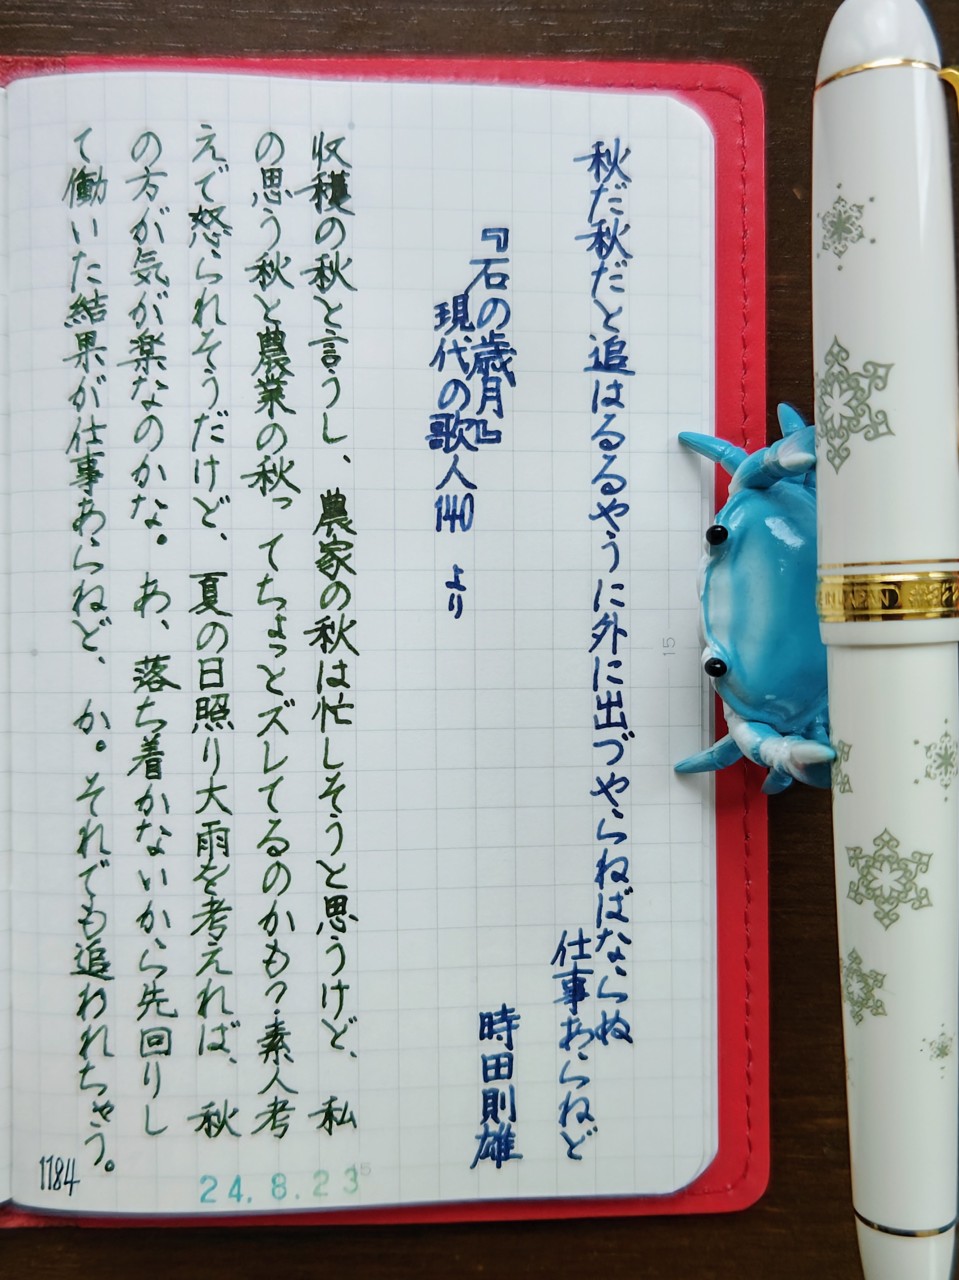 秋だ秋だと追はるるやうに外に出づやらねばならぬ
仕事あらねど
『石の歳月』
時田則雄
現代の歌人140 より
収穫の秋と言うし、農家の秋は忙しそうと思うけど、私
の思う秋と農業の秋ってちょっとズレてるのかも?素人考
えで怒られそうだけど、夏の日照り大雨を考えれば、秋
の方が気が楽なのかな。あ、落ち着かないから先回りし
て働いた結果が仕事あらねど、か。それでも追われちゃう。
1184
24.8.23
15
15
JAPAN